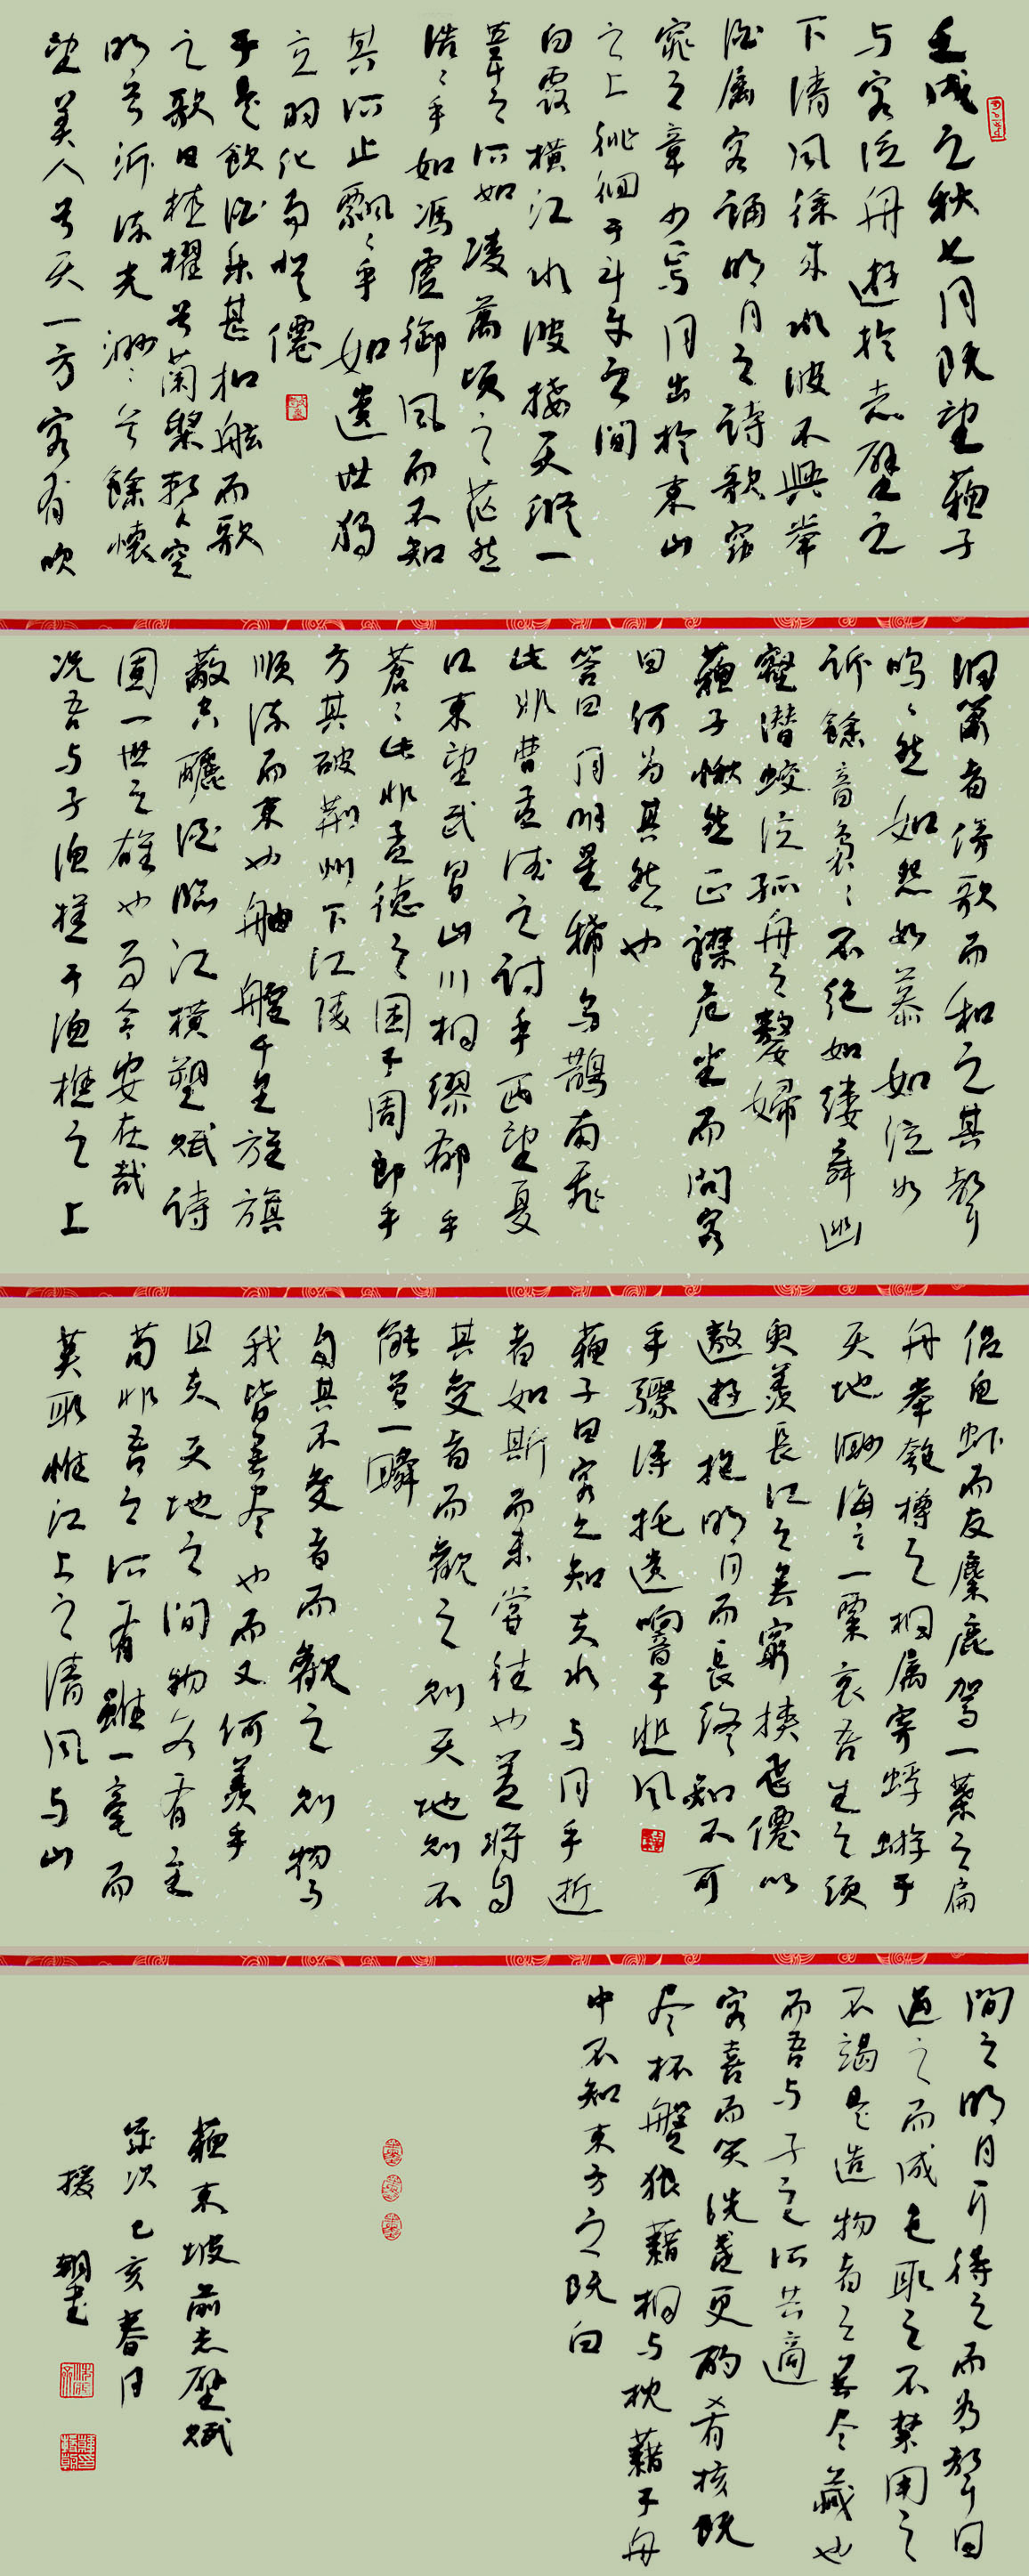 壬戌之秋七月既望蘇子
与客泛舟遊於赤壁之
下清風徐来水波不興举
酒属客誦明月之詩歌窈
窕之章少焉月出於東山
之上徘徊于斗牛之間
白露横江水波接天縱一
葦之所如凌萬頃之茫然
浩々乎如馮虛御風而不知
其所止飄々乎如遺世獨
立羽化而登僊
于是飲酒乐甚扣舷而歌
之歌曰桂櫂兮蘭槳擊空
明兮泝流光渺々兮餘懷
望美人兮天一方客有吹
洞簫者倚歌而和之其聲
鳴々然如怨如慕如泣如
訴餘音裊々不绝如缕舞幽
壑潜蛟泣孤舟之嫠婦
蘇子愀然正襟危坐而問客
曰何为其然也
答曰月明星稀烏鵲南飛
此非曹孟德之詩乎西望夏
口東望武昌山川相缪郁乎
蒼々此非孟德之困于周郎乎
方其破荆州下江陵
順流而東也舳艫千里旌旗
蔽空釃酒臨江横槊赋詩
固一世之雄也而今安在哉
况吾与子漁樵于漁樵之上
侣鱼虾而友麋鹿驾一葉之扁
舟举匏樽之相属寄蜉蝣于
天地渺海之一粟哀吾生之须
臾羡長江之無窮挟飛僊以
遨遊抱明月而長终知不可
乎驟得托遗響于悲风
蘇子曰客亦知夫水与月乎逝
者如斯而未嘗往也盖将自
其变者而觀之则天地则不
能曾一瞬
自其不变者而觀之则物与
我皆無尽也而又何羡乎
且夫天地之間物各有主
苟非吾之所有雖一毫而
莫取惟江上之清风与山
間之明月耳得之而为聲目
遇之而成色取之不禁用之
不竭是造物者之無尽藏也
而吾与子之所共適
客喜而笑洗盏更酌肴核既
尽杯盤狼藉相与枕藉于舟
中不知東方之既白
蘇東坡前赤壁赋
歲次己亥春月
援朝書